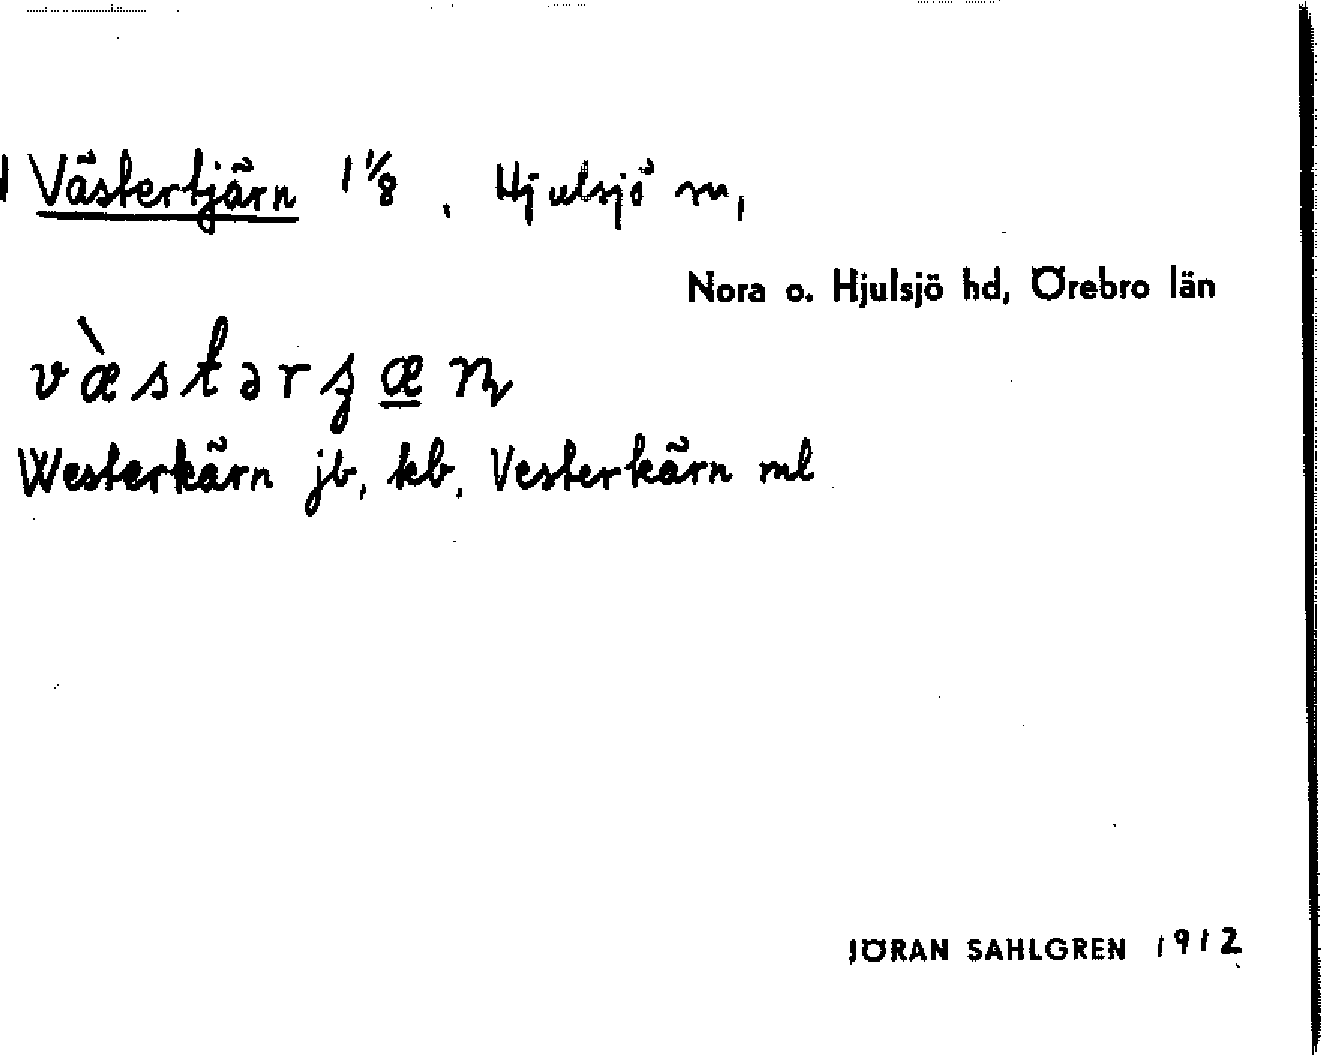 Västertjärn 1 1/8. Hjulsjö sn,
Nora o. Hjulsjö hd, Örebro län
Westerkärn jb, kb, Vesterkärn ml
JÖRAN SAHLGREN 1912